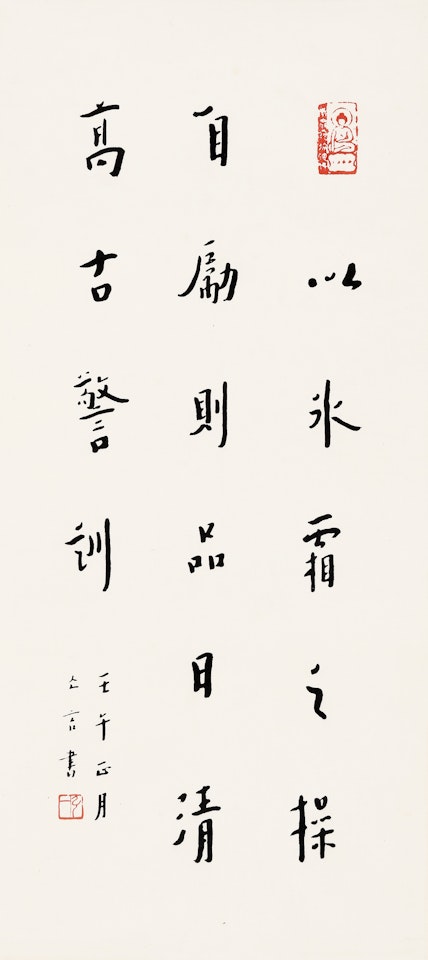 以氷霜之操
自勵則品日清
高古警訓
壬午正月
亡言書